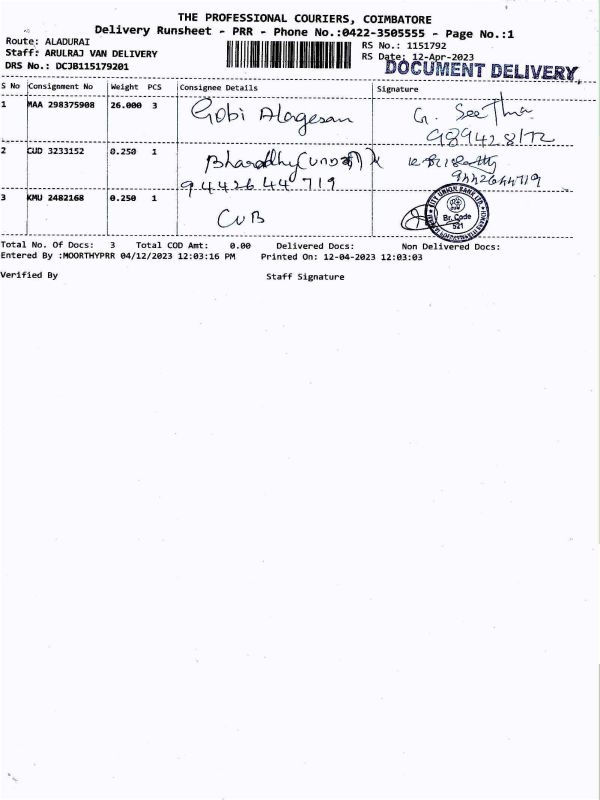 THE PROFESSIONAL COURIERS, COIMBATORE
Delivery Runsheet - PRR - Phone No.:0422-3505555 - Page No.:1
Route: ALADURAI
RS No.: 1151792
Staff: ARULRAJ VAN DELIVERY
RS Date: 12-Apr-2023
DRS No.: DCJB115179201
DOCUMENT DELIVERY
S No Consignment No Weight PCS Consignee Details Signature
1 MAA 298375908 26.000 3 Gobi Alagesan G. Seetha
9894428172
2 CUD 3233152 0.250 1 Bharadhy
9442644719 9442644719
3 KMU 2482168 0.250 1 CUB
CITY UNION BANK LTD.
Br. Code
521
Total No. Of Docs: 3 Total COD Amt: 0.00 Delivered Docs: Non Delivered Docs:
Entered By :MOORTHYPRR 04/12/2023 12:03:16 PM Printed On: 12-04-2023 12:03:03
Verified By Staff Signature